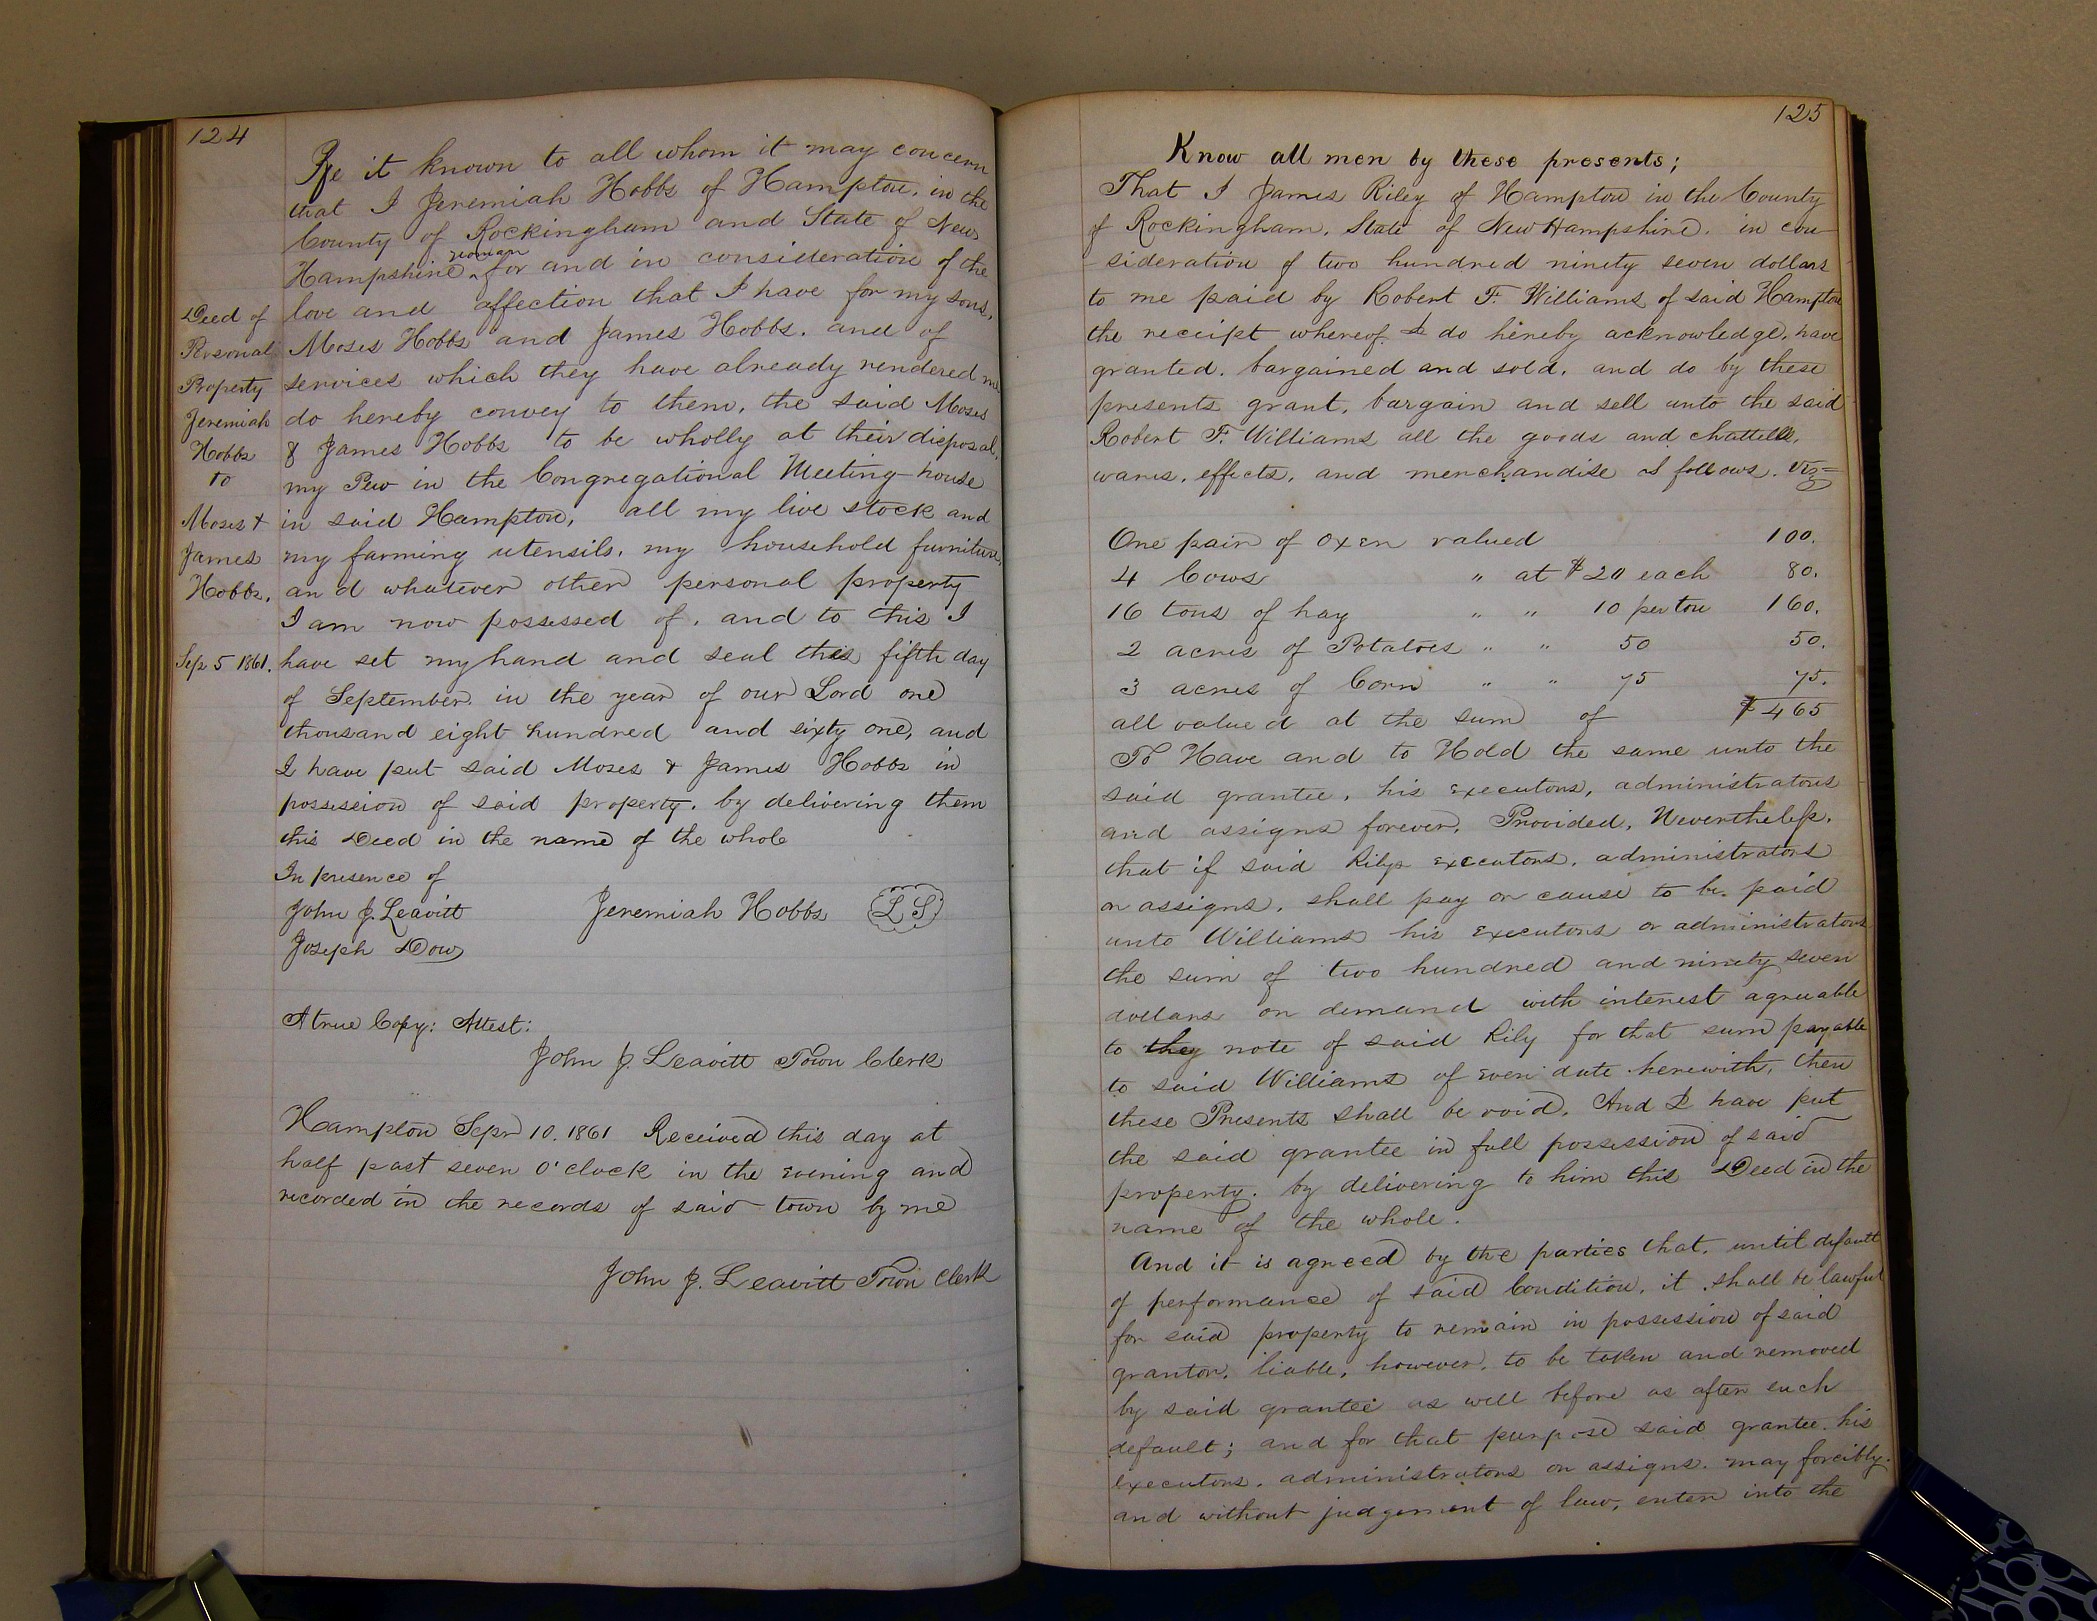 124
Be it known to all whom it may concern
that I Jeremiah Hobbs of Hampton, in the
County of Rockingham and State of New
yeoman
Hampshire, for and in consideration of the
love and affection that I have for my sons,
Moses Hobbs and James Hobbs, and of
services which they have already rendered me
do hereby convey to them, the said Moses
& James Hobbs to be wholly at their disposal,
my Pew in the Congregational Meeting-house
in said Hampton, all my live stock and
my farming utensils, my household furniture,
and whatever other personal property
I am now possessed of, and to this I
have set my hand and seal this fifth day
of September in the year of our Lord one
thousand eight hundred and sixty one, and
I have put said Moses & James Hobbs in
possession of said property, by delivering them
this Deed in the name of the whole
In presence of
John J. Leavitt
Jeremiah Hobbs L S
Joseph Dow
A true Copy: Attest:
John J. Leavitt Town Clerk
Hampton Sepr 10. 1861 Received this day at
half past seven O'clock in the evening and
recorded in the records of said town by me
John J. Leavitt Town Clerk
Deed of
Personal
Property
Jeremiah
Hobbs
to
Moses &
James
Hobbs.
Sep 5 1861.
125
Know all men by these presents;
That I James Riley of Hampton in the County
of Rockingham, State of New Hampshire, in con-
-sideration of two hundred ninety seven dollars
to me paid by Robert F. Williams of said Hampton
the receipt whereof I do hereby acknowledge, have
granted, bargained and sold, and do by these
presents grant, bargain and sell unto the said
Robert F. Williams all the goods and chattells,
wares, effects, and merchandise as follows. Viz=
One pair of oxen valued 100.
4 Cows " at $20 each 80.
16 tons of hay " " 10 per ton 160.
2 acres of Potatoes " " 50 50.
3 acres of Corn " " 75 75.
all valued at the sum of $465
To Have and to Hold the same unto the
said grantee, his executors, administrators
and assigns forever, Provided, Nevertheless,
that if said Rilys executors, administrators
or assigns, shall pay or cause to be paid
unto Williams his executors or administrators
the sum of two hundred and ninety seven
dollars on demand with interest agreeable
to they note of said Rily for that sum payable
to said Williams of even date herewith, then
these Presents shall be void. And I have put
the said grantee in full possession of said
property, by delivering to him this Deed in the
name of the whole.
And it is agreed by the parties that, until default
of performance of said Condition, it shall be lawful
for said property to remain in possession of said
grantor, liable, however, to be taken and removed
by said grantee as well before as after such
default; and for that purpose said grantee, his
executors, administrators or assigns, may forcibly
and without judgement of law, enter into the